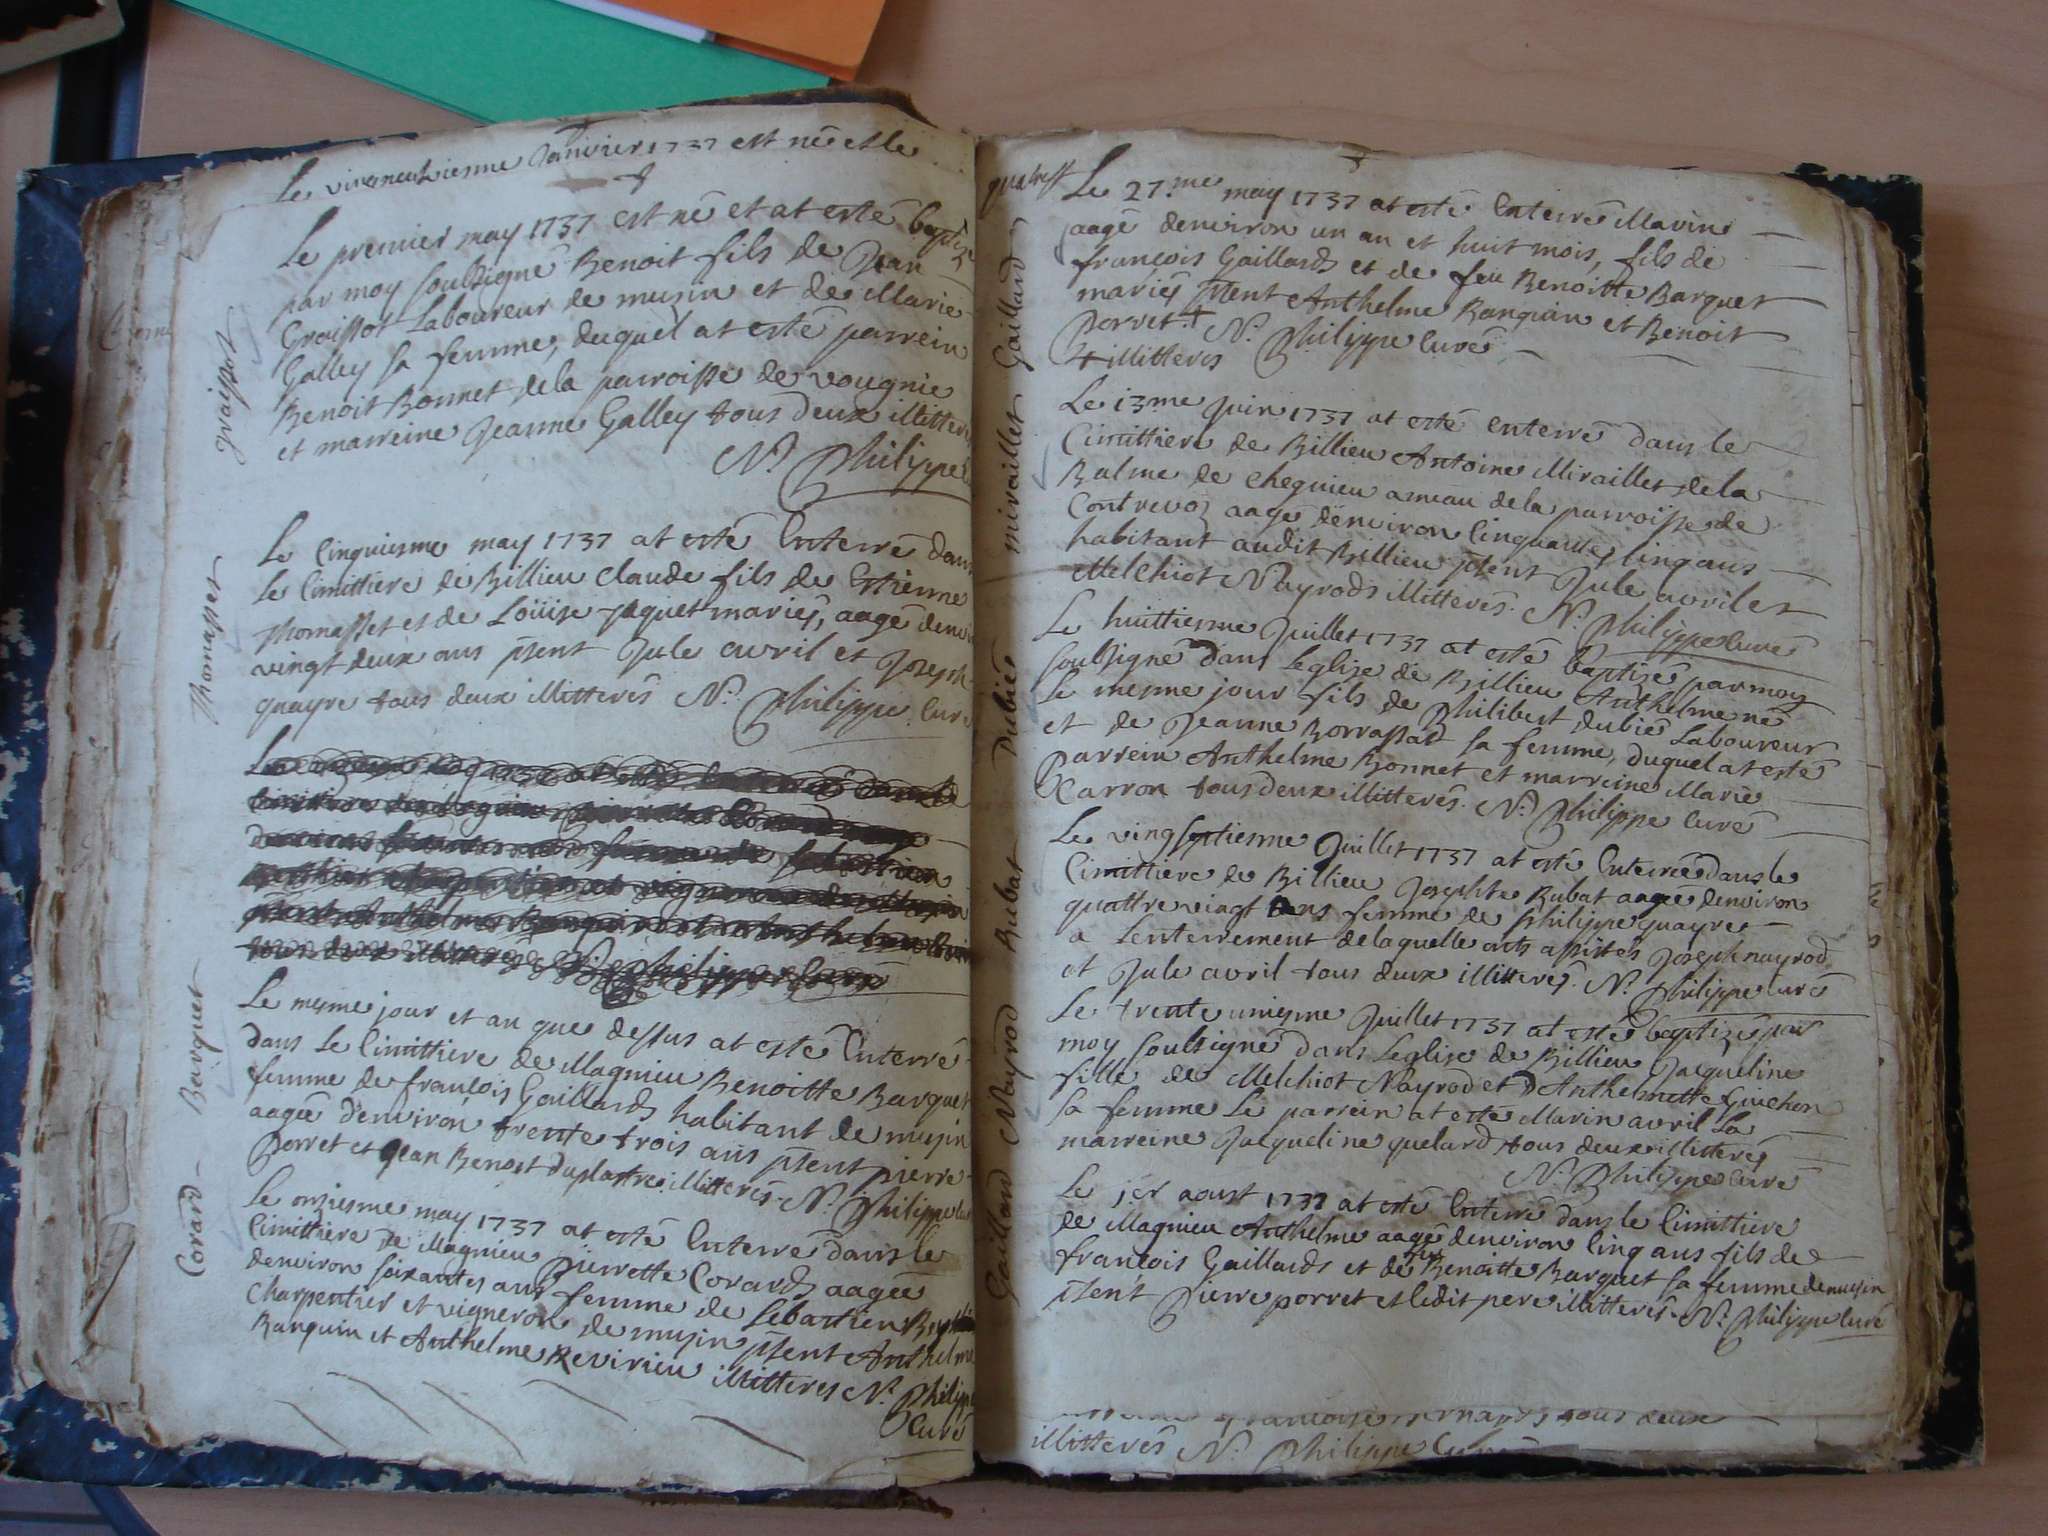 Le vingneuviesme Janvier 1737 est né et le
Le premier may 1737 est né et at esté baptizé
par moy soubsigné Benoit fils de Jean
Groissot Laboureur de musin et de Marie
Galley sa femme, duquel at esté parrein
Benoit Bonnet de la parroisse de vougnie
et marreine Jeanne Galley tous deux illitterés
N. Philippe
Groissot
Le Cinquiesme may 1737 at esté Enterré dans
Le Cimittiere de Billieu Claude fils de Estienne
Thomasset et de Loüise Jaquet mariés, aagé denviron
vingt deux ans psent Jule avril et Joseph
quayre tous deux illitterés N. Philippe Curé
Thomasset
Le mesme jour et an que dessus at esté Enterré
dans Le Cimittiere de Magnieu Benoitte Barquet
femme de françois Gaillard habitant de musin
aagée d'environ trente trois ans psent pierre
Porret et Jean Benoit Duplastre illitterés N. Philippe Curé
Barquet
Le onziesme may 1737 at esté Enterré dans le
Cimittiere de Magnieu Pierrette Corard aagée
denviron soixante ans femme de Sebastien
Charpentier et vigneron de musin psent Anthelme
Banquin et Anthelme Revirieu illitterés N. Philippe
Curé
Corard
Le 27.me may 1737 at esté Enterré Marin
aagé denviron un an et huit mois, fils de
françois Gaillard et de feu Benoitte Barquet
mariés psent Anthelme Banquin et Benoit
Porret + N. Philippe Curé
+ illitterés
Gaillard
Le 13me Juin 1737 at esté enterré dans le
Cimittiere de Billieu Antoine Miraillet de la
Balme de Chegnieu ameau de la parroisse de
Contrevoz aagé denviron Cinquante Cinq ans
habitant audit Billieu psent Jule avril et
Melchiot Nayrod illitterés. N. Philippe Curé
miraillet
Le huittiesme Juillet 1737 at esté baptizé par moy
soubsigné dans Leglise de Billieu Anthelme né
Le mesme jour fils de Philibert dubié Laboureur
et de Jeanne Borrassat sa femme, duquel at esté
Parrein Anthelme Bonnet et marreine Marie
Carron tous deux illitterés. N. Philippe Curé
Dubié
Le vingseptiesme Juillet 1737 at esté Enterrée dans le
Cimittiere de Billieu Josephte Rubat aagée denviron
quattre viagt ans femme de Philippe quayre
a Lenterrement de laquelle onts assistés Joseph nayrod
et Jule avril tous deux illitterés. N. Philippe Curé
Rubat
Le trente uniesme Juillet 1737 at estée baptizée par
moy soubsigné dans Leglise de Billieu Jacqueline
fille de Melchiot Nayrod et D'Anthelmette Guichon
sa femme Le parrein at esté Marin avril La
marreine Jacqueline quelard tous deux illitterés
N. Philippe Curé
Nayrod
Le 1er aoust 1737 at esté Enterré dans le Cimittiere
de Magnieu Anthelme aagé denviron Cinq ans fils de
françois Gaillard et de feu Benoitte Barquet sa femme de musin
psent Pierre porret et Ledit pere illitterés N. Philippe Curé
Gaillard
tous deux
illitterés N. Philippe Curé